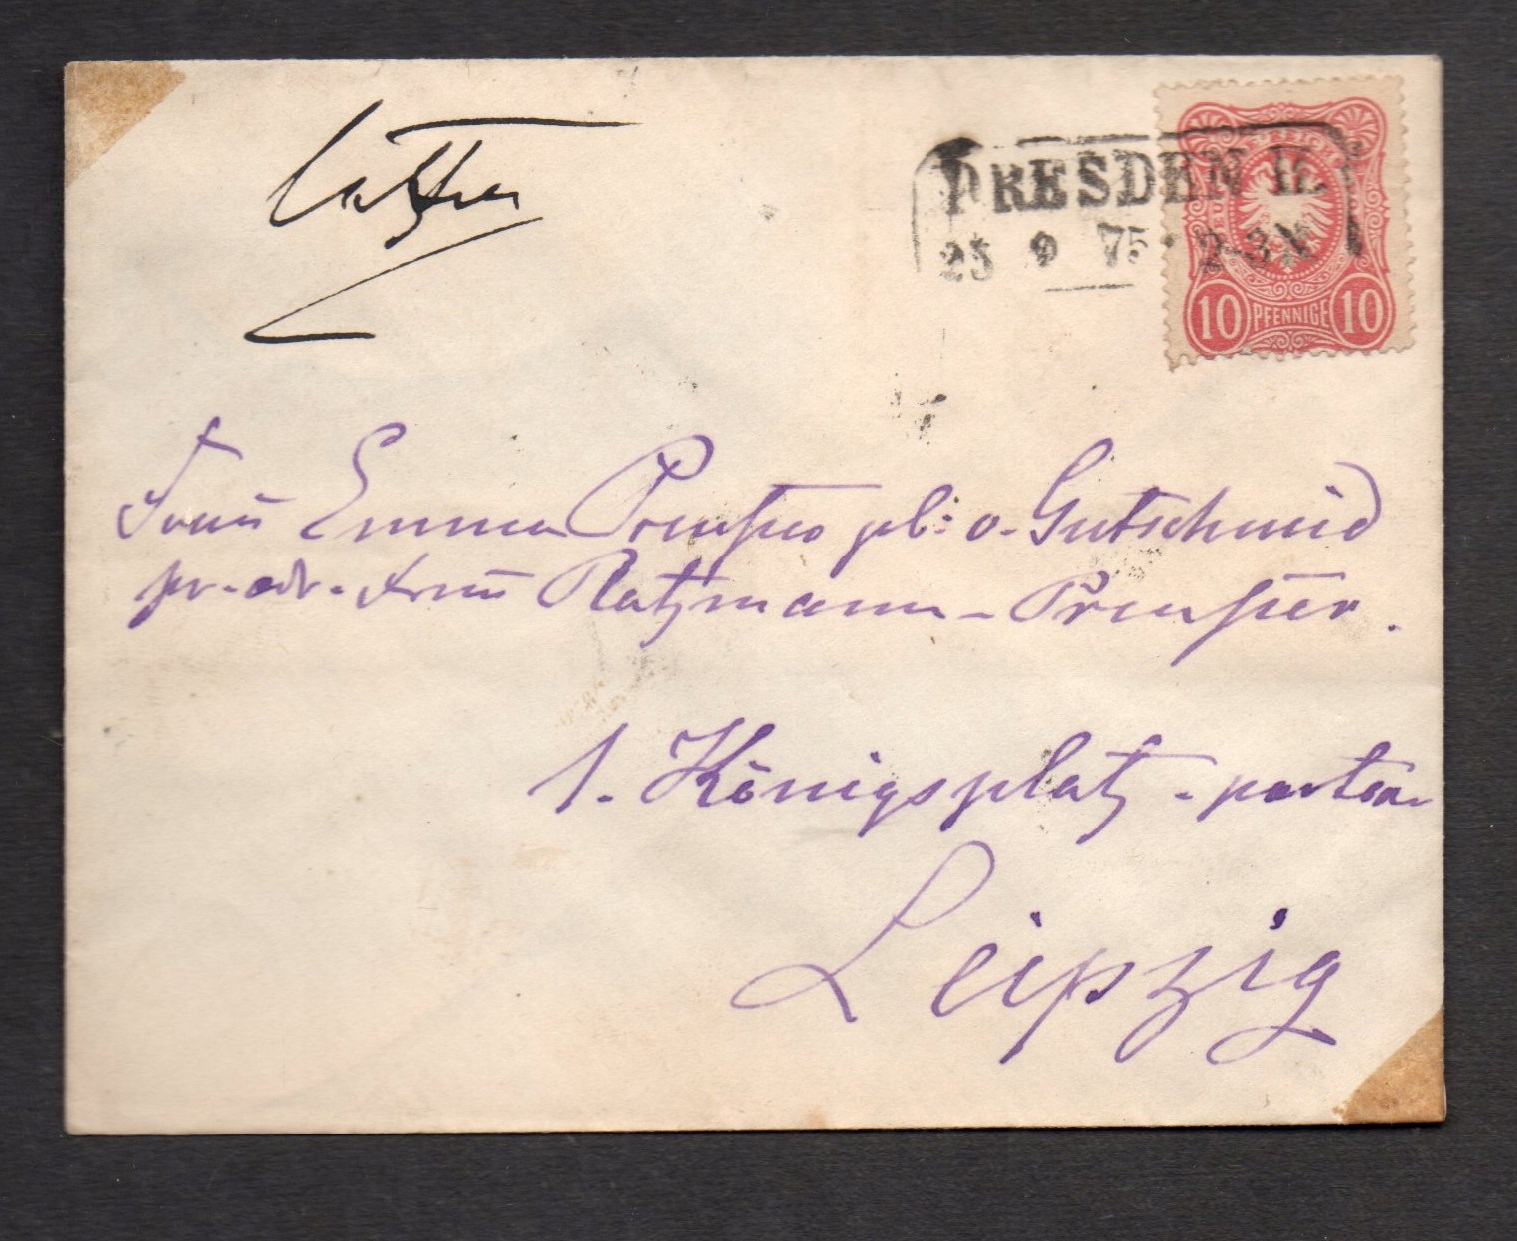 DRESDEN II.
25 9 75 2-3N
10 PFENNIGE 10
Frau Emma Preusser gb: v. Gutschmid
pr. adr. Frau Ratzmann - Preusser.
1. Königsplatz - parterre
Leipzig